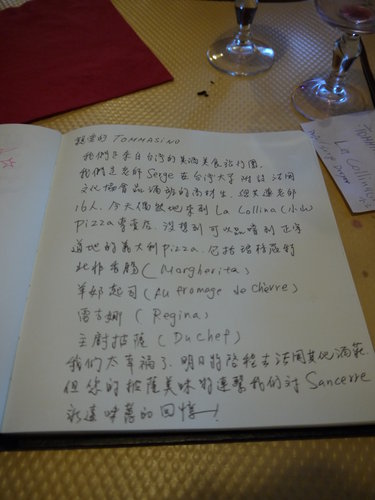 親愛的 TOMMASINO
我們是來自台灣的美酒美食旅行團。
我們是老師 Serge 在台灣大學附設法國
文化協會品酒班的高材生，
16人，今天偶然地來到 La Collina (小山)
Pizza 專賣店，沒想到可以品嚐到正宗
道地的義大利 Pizza，包括
北非香腸 (Margherita)
羊奶起司 (Au fromage de chèvre)
雷吉娜 (Regina)
主廚披薩 (Du chef)
我們太幸福了，明日將啓程去法國其他酒莊，
但您的披薩美味將連繫我們對 Sancerre
永遠 的回憶！
La Collina